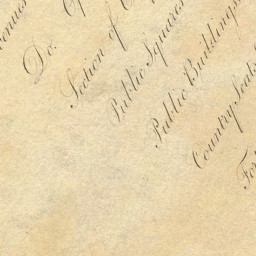 Do.
Section of
Public Squares
Public Buildings
Country Seats
For